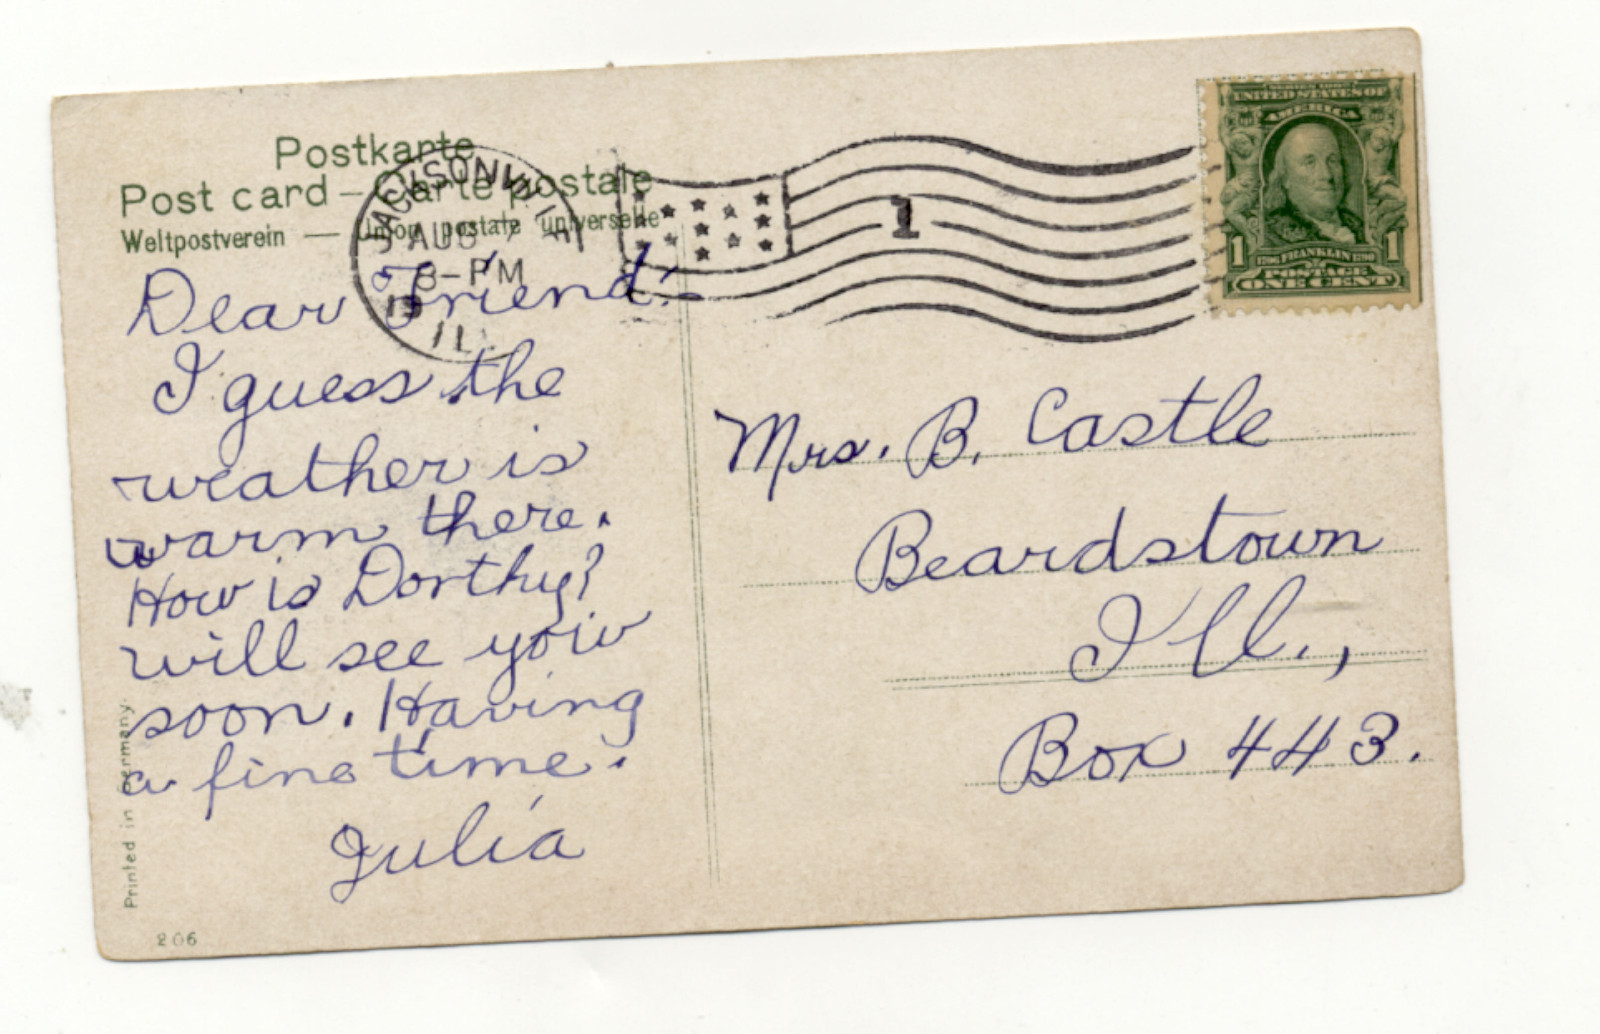 Postkarte
Post card — Carte postale
Weltpostverein — Union postale universelle
JACKSONVILLE
AUG 7
8-PM
19
ILL
1
SERIES 1902
UNITED STATES OF
AMERICA
1706 FRANKLIN 1790
1 1
POSTAGE
ONE CENT
Dear Friend:
I guess the
weather is
warm there.
How is Dorthy?
will see you
soon. Having
a fine time.
Julia
Mrs. B. Castle
Beardstown
Ill.,
Box 443.
Printed in Germany.
206